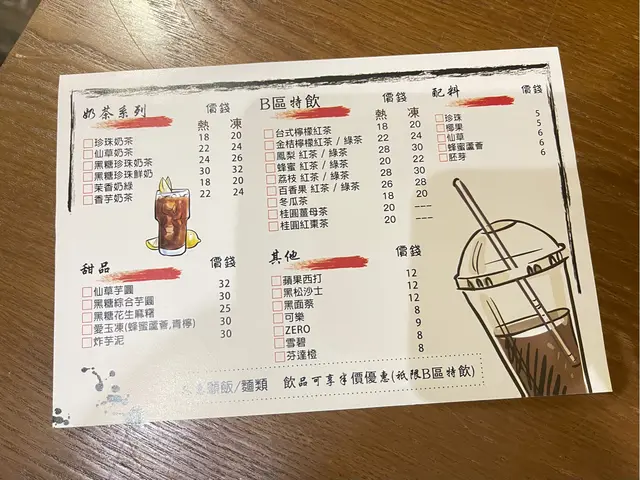 奶茶系列 價錢
熱 凍
珍珠奶茶 18 20
仙草奶茶 22 24
黑糖珍珠奶茶 24 26
黑糖珍珠鮮奶 30 32
茉香奶綠 18 20
香芋奶茶 22 24
B區特飲 價錢
熱 凍
台式檸檬紅茶 18 20
金桔檸檬紅茶 / 綠茶 22 24
鳳梨 紅茶 / 綠茶 28 30
蜂蜜 紅茶 / 綠茶 20 22
荔枝 紅茶 / 綠茶 28 30
百香果 紅茶 / 綠茶 26 28
冬瓜茶 18 20
桂圓薑母茶 20 ---
桂圓紅棗茶 20 ---
配料 價錢
珍珠 5
椰果 5
仙草 6
蜂蜜蘆薈 6
胚芽 6
甜品 價錢
仙草芋圓 32
黑糖綜合芋圓 30
黑糖花生麻糬 25
愛玉凍(蜂蜜蘆薈,青檸) 30
炸芋泥 30
其他 價錢
蘋果西打 12
黑松沙士 12
黑面蔡 12
可樂 8
ZERO 9
雪碧 8
芬達橙 8
飯/麵類 飲品可享半價優惠(祇限B區特飲)